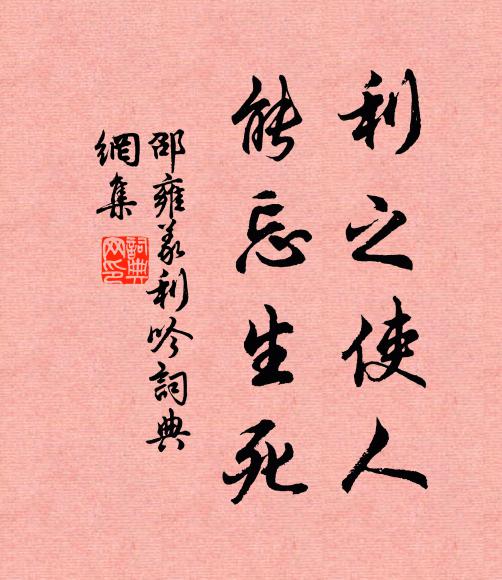 利之使人
能忘生死
邵雍義利吟詞典
網集
詞典網印